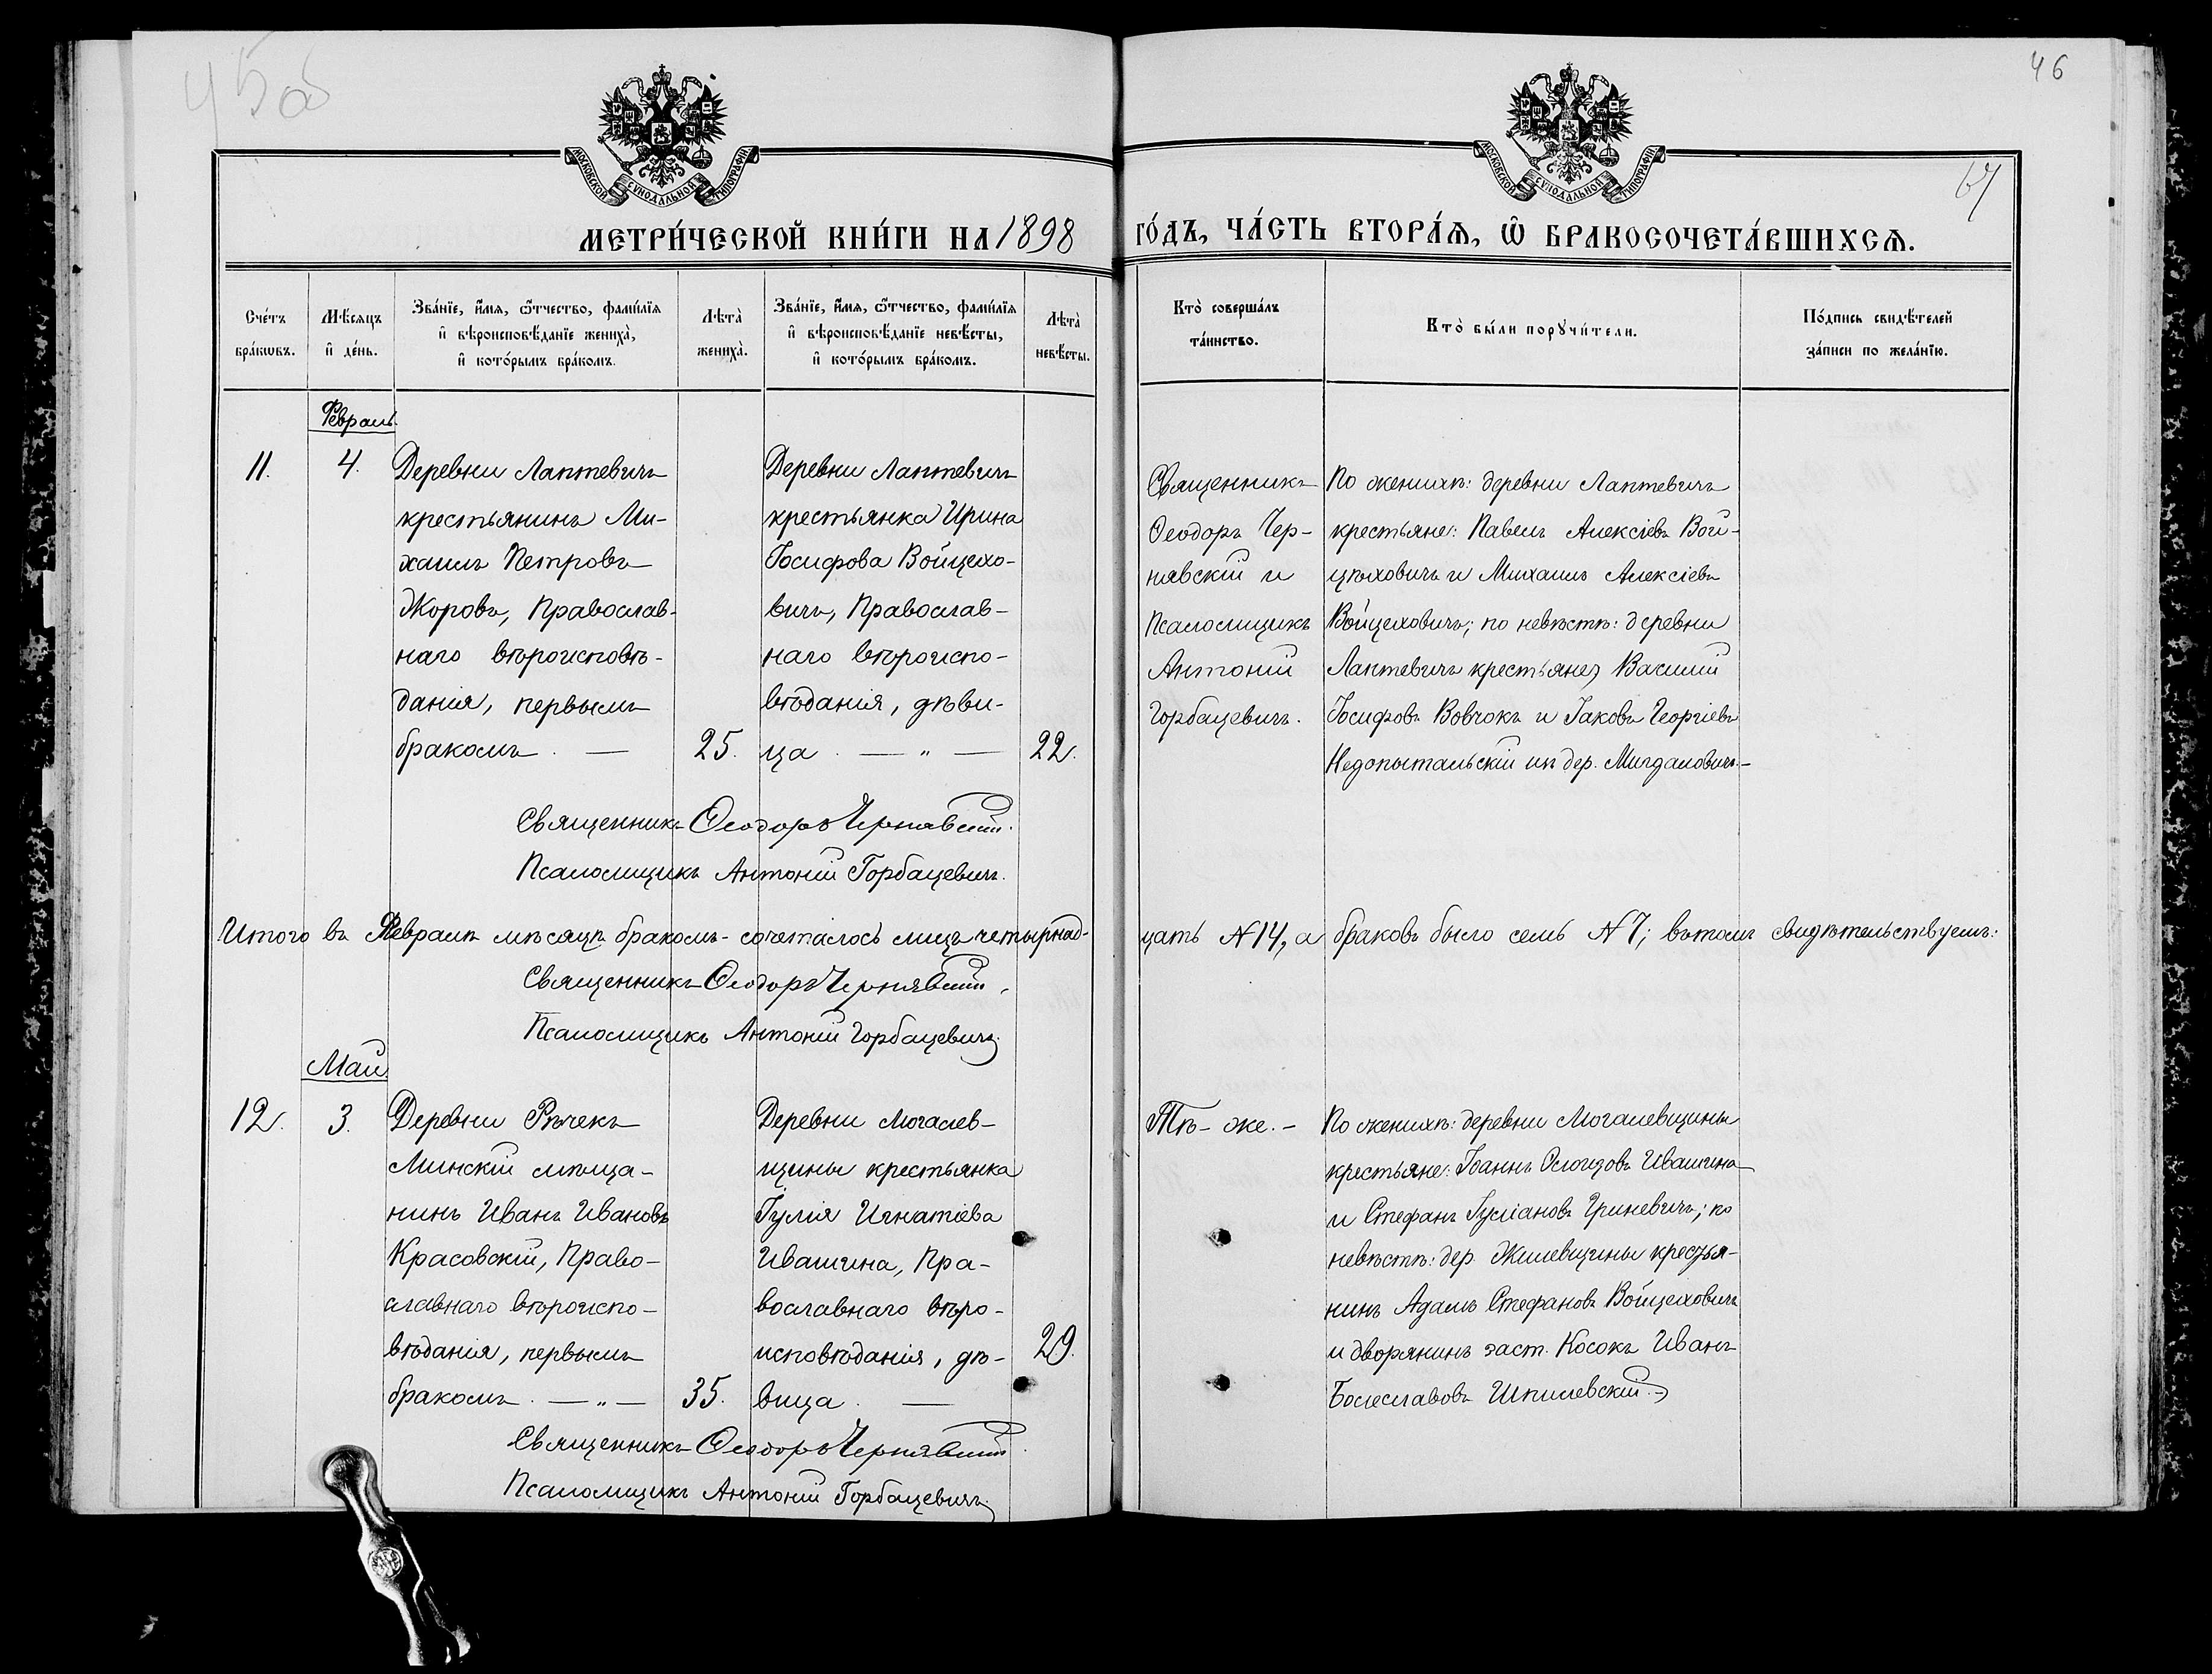 45об
46
67
МОСКОВСКОЙ СѴНОДАЛЬНОЙ ТИПОГРАФІИ.
МОСКОВСКОЙ СѴНОДАЛЬНОЙ ТИПОГРАФІИ.
МЕТРИ́ЧЕСКОЙ КНИ́ГИ НА 1898 ГО́ДЪ, ЧА́СТЬ ВТОРА́Я, Ѡ҆ БРАКОСОЧЕТА́ВШИХСЯ.
Сче́тъ
бра́кѡвъ.
Мѣ́сяцъ
и҆ де́нь.
Зва́нїе, и҆́мя, ѻ҆́тчество, фами́лїя
и҆ вѣроисповѣ́данїе жениха̀,
и҆ кото́рымъ бра́комъ.
Лѣта̀
жениха̀.
Зва́нїе, и҆́мя, ѻ҆́тчество, фами́лїя
и҆ вѣроисповѣ́данїе невѣ́сты,
и҆ кото́рымъ бра́комъ.
Лѣта̀
невѣ́сты.
Кто̀ соверша́лъ
та́инство.
Кто̀ бы́ли порꙋчи́тели.
По́дпись свидѣ́телей
за́писи по жела́нїю.
Февраль.
11.
4.
Деревни Лаптевичъ
крестьянинъ Ми-
хаилъ Петровъ
Жоровъ, Православ-
наго вѣроисповѣ-
данія, первымъ
бракомъ. —
25.
Деревни Лаптевичъ
крестьянка Ирина
Іосифова Войцехо-
вичъ, Православ-
наго вѣроиспо-
вѣданія, дѣви-
ца. — „ —
22.
Священникъ
Ѳеодоръ Чер-
нявскій и
Псаломщикъ
Антоній
Горбацевичъ.
По женихѣ: деревни Лаптевичъ
крестьяне: Павелъ Алексіевъ Вой-
цѣховичъ и Михаилъ Алексіевъ
Войцеховичъ; по невѣстѣ: деревни
Лаптевичъ крестьяне, Василій
Іосифовъ Вовчокъ и Іаковъ Георгіевъ
Недопытальскій изъ дер. Мигдаловичъ.—
Священникъ Ѳеодоръ Чернявскій.
Псаломщикъ Антоній Горбацевичъ.
Итого въ Февралѣ мѣсяцѣ бракомъ-сочеталось лицъ четырнад-цать №14, а браковъ было семь №7; въ томъ свидѣтельствуемъ:
Священникъ Ѳеодоръ Чернявскій.
Псаломщикъ Антоній Горбацевичъ.
Май.
12.
3.
Деревни Рѣчекъ
Минскій мѣща-
нинъ Иванъ Ивановъ
Красовскій, Право-
славнаго вѣроиспо-
вѣданія, первымъ
бракомъ. — „ —
35.
Деревни Могалев-
щины крестьянка
Іулія Игнатіева
Ивашина, Пра-
вославнаго вѣро-
исповѣданія, дѣ-
вица. —
29.
Тѣ-же.—
По женихѣ: деревни Могалевщины
крестьяне: Іоаннъ Ивашина
и Стефанъ Іуліановъ Гриневичъ; по
невѣстѣ: дер. Жилевщины крестья-
нинъ Адамъ Стефановъ Войцеховичъ
и дворянинъ заст. Косокъ Иванъ
Болеславовъ Шпилевскій.
Священникъ Ѳеодоръ Чернявскій
Псаломщикъ Антоній Горбацевичъ.